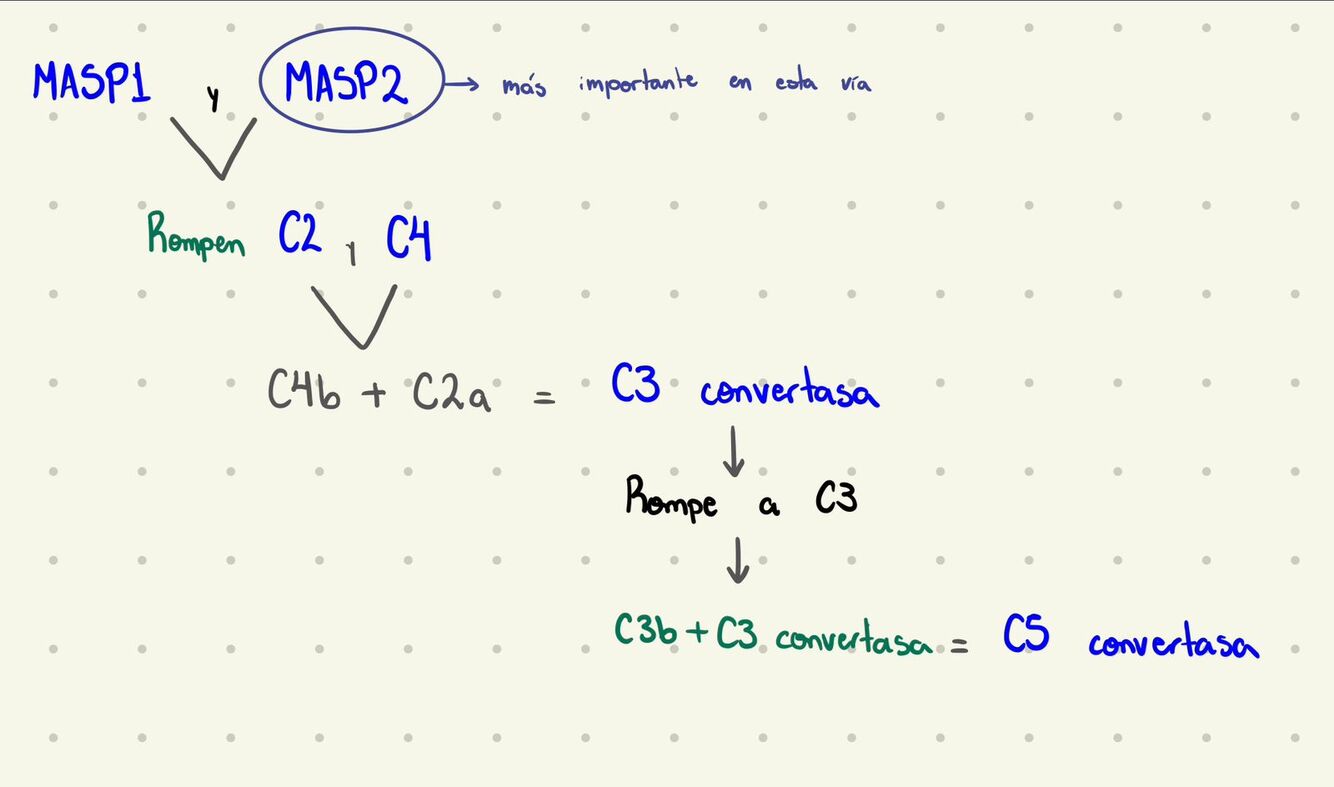 MASP1 y MASP2 → más importante en esta vía
Rompen C2 y C4
C4b + C2a = C3 convertasa
Rompe a C3
C3b + C3 convertasa = C5 convertasa